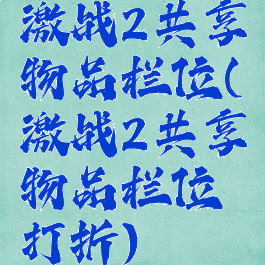 激战2共享
物品栏位(
激战2共享
物品栏位
打折)